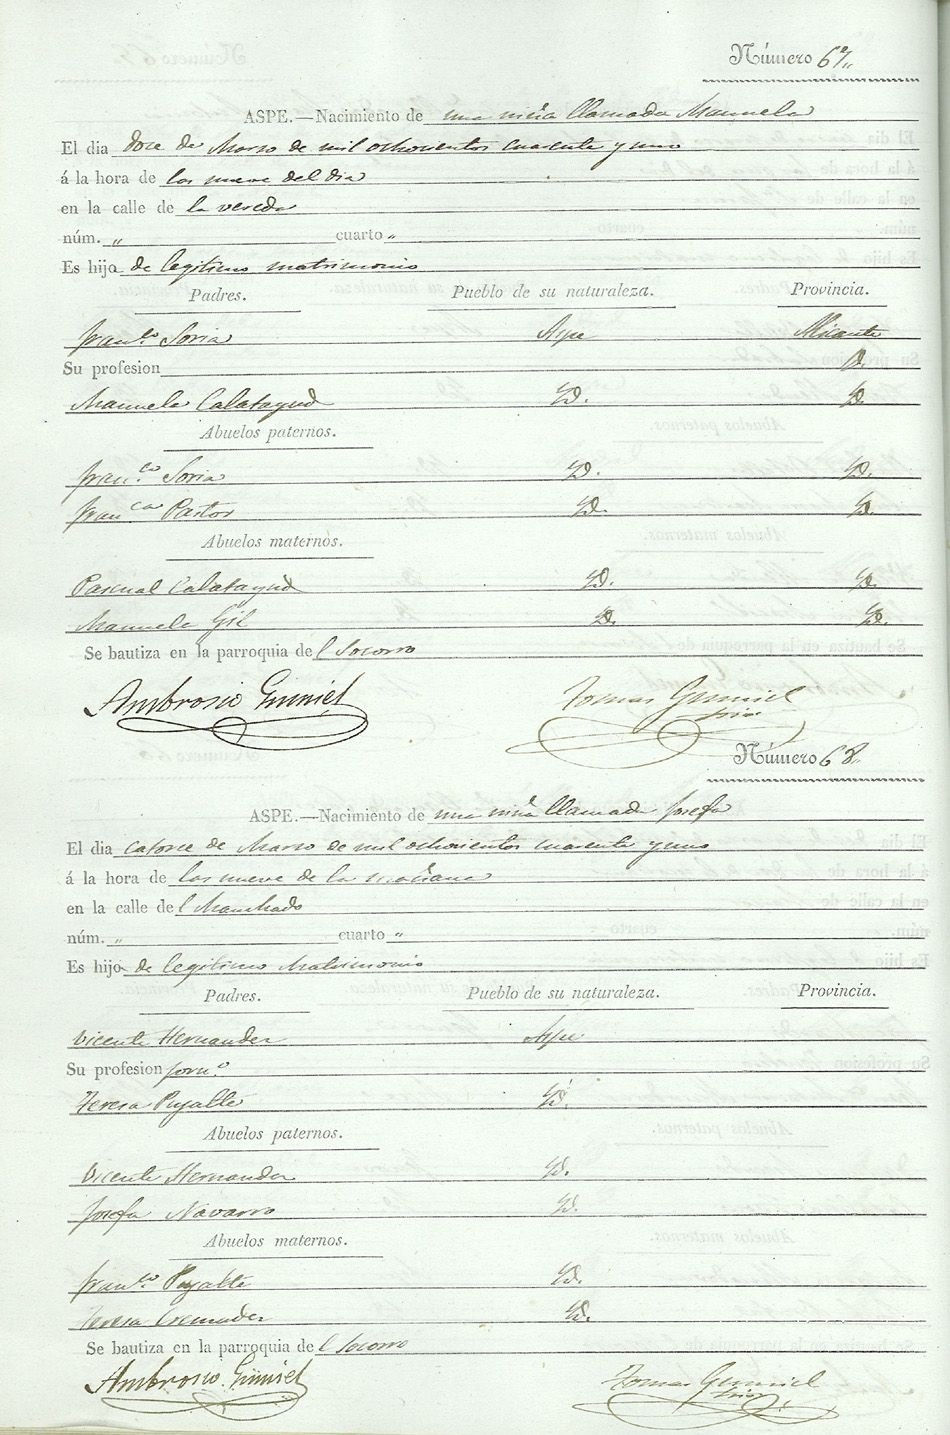 Número 67„
ASPE.—Nacimiento de una niña llamada Manuela
El dia doce de Marzo de mil ochocientos cuarenta y uno
á la hora de las nueve del dia
en la calle de la vereda
núm. „ cuarto „
Es hijo de legitimo matrimonio
Padres. Pueblo de su naturaleza. Provincia.
Fran.co Soria Aspe Alicante
Su profesion Yd.
Manuela Calatayud Yd. Yd.
Abuelos paternos.
Fran.co Soria Yd. Yd.
Fran.ca Pastor Yd. Yd.
Abuelos maternos.
Pascual Calatayud Yd. Yd.
Manuela Gil Yd. Yd.
Se bautiza en la parroquia del Socorro
Ambrosio Tomas
Número 68„
ASPE.—Nacimiento de una niña llamada Josefa
El dia catorce de Marzo de mil ochocientos cuarenta y uno
á la hora de las nueve de la mañana
en la calle del
núm. „ cuarto „
Es hijo de legitimo Matrimonio
Padres. Pueblo de su naturaleza. Provincia.
Vicente Hernandez Aspe
Su profesion jorn.o
Teresa Puyalte Yd.
Abuelos paternos.
Vicente Hernandez Yd.
Josefa Navarro Yd.
Abuelos maternos.
Fran.co Puyalte Yd.
Teresa Cremades Yd.
Se bautiza en la parroquia del Socorro
Ambrosio Tomas